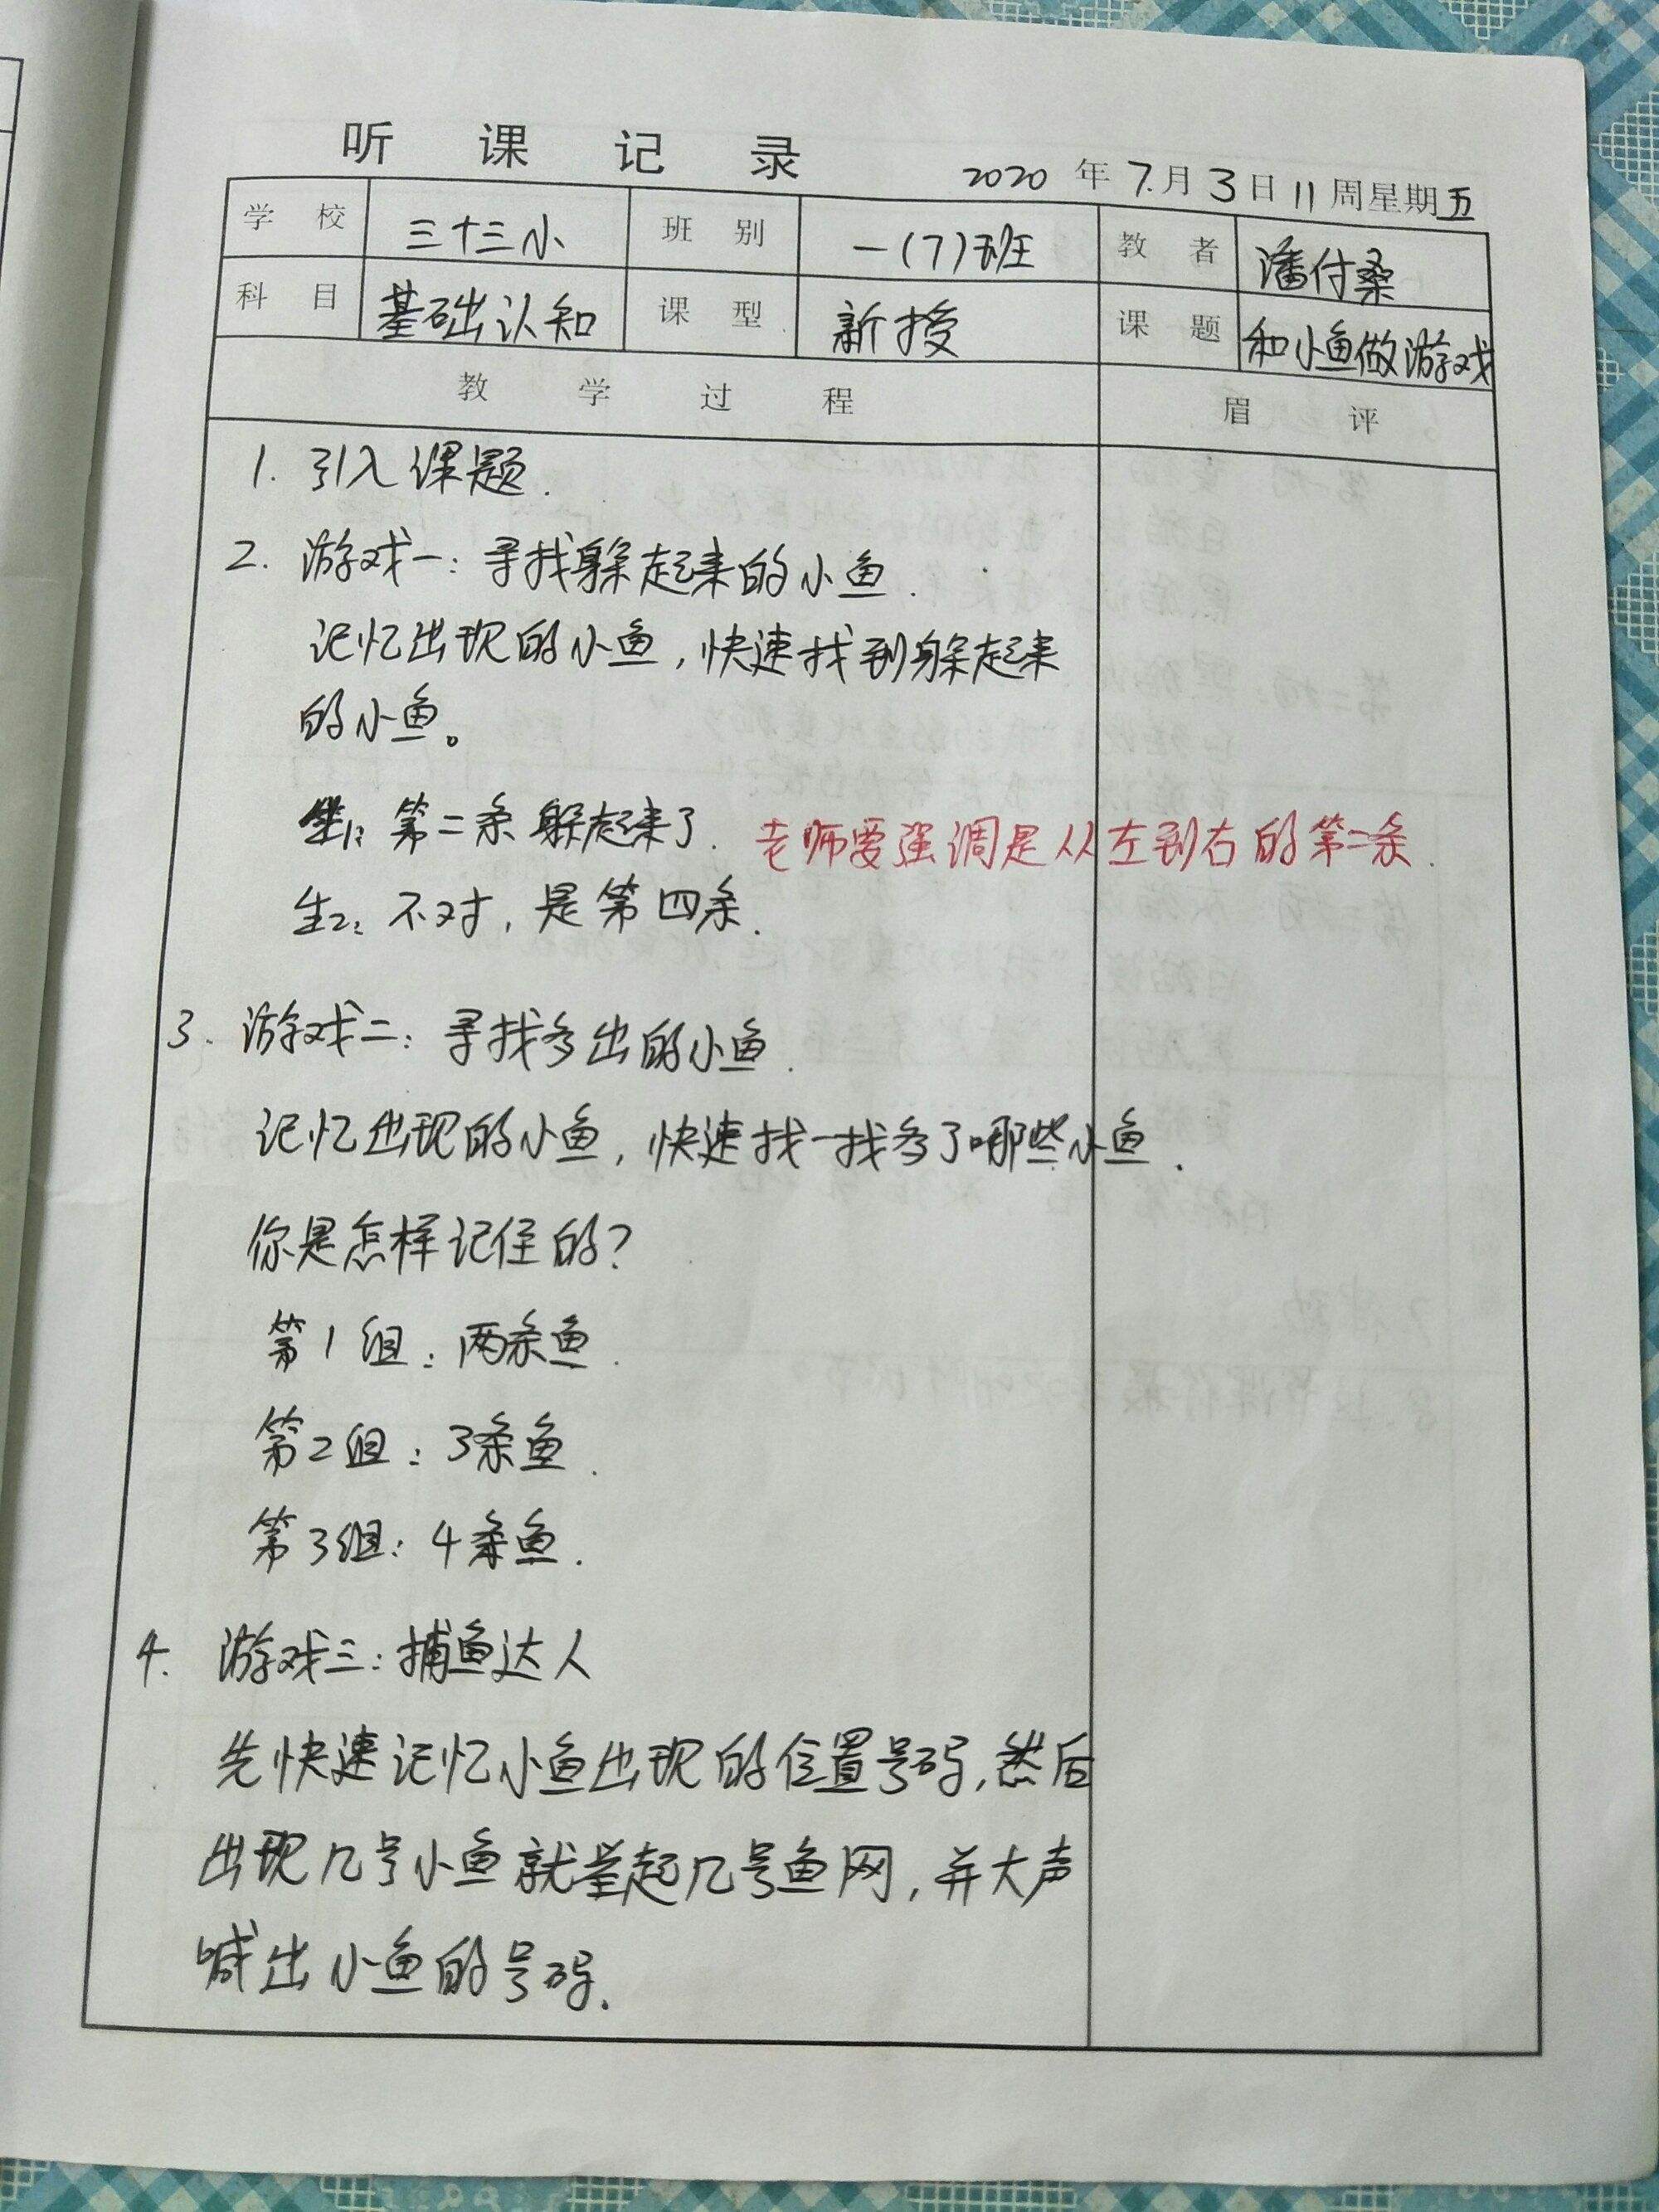 听课记录
2020年7.月3日11周星期五
学校 三十三小 班别 一(7)班 教者 潘付桑
科目 基础认知 课型 新授 课题 和小鱼做游戏
教学过程 眉评
1. 引入课题.
2. 游戏一：寻找躲起来的小鱼.
记忆出现的小鱼，快速找到躲起来
的小鱼。
生1：第二条躲起来了. 老师要强调是从左到右的第二条.
生2：不对，是第四条.
3. 游戏二：寻找多出的小鱼.
记忆出现的小鱼，快速找一找多了哪些小鱼.
你是怎样记住的？
第1组：两条鱼.
第2组：3条鱼.
第3组：4条鱼.
4. 游戏三：捕鱼达人
先快速记忆小鱼出现的位置号码，然后
出现几号小鱼就举起几号鱼网，并大声
喊出小鱼的号码.